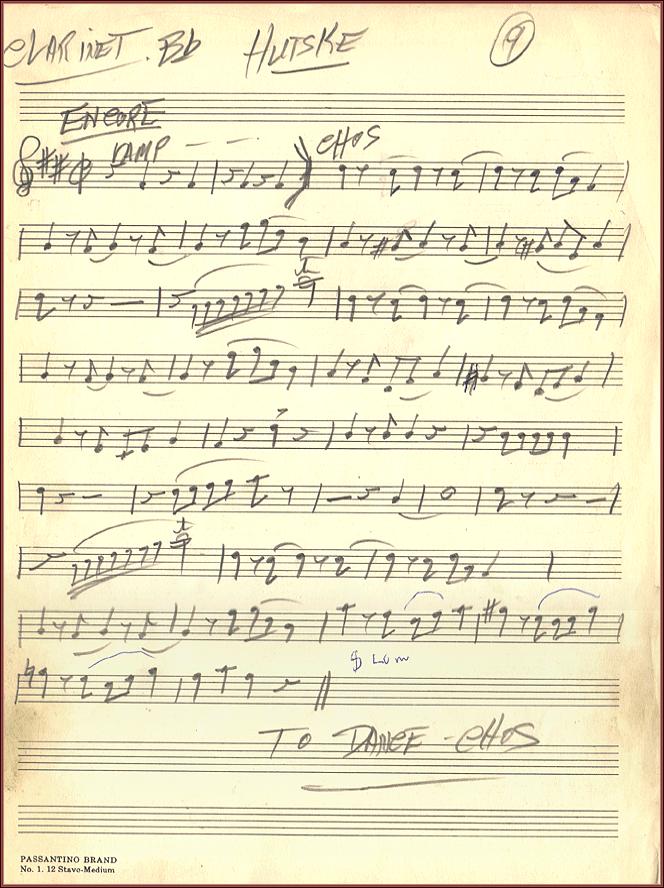 CLARINET. Bb HUTSKE 9
ENCORE
VAMP - - - CHOS
TO DANCE - CHOS
PASSANTINO BRAND
No. 1. 12 Stave-Medium